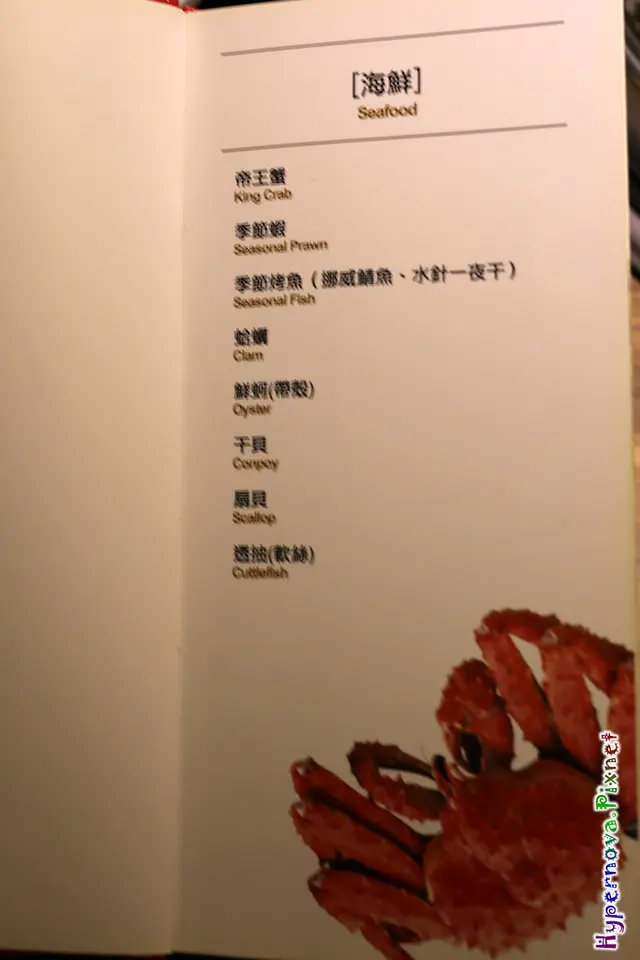 [海鮮]
Seafood
帝王蟹
King Crab
季節蝦
Seasonal Prawn
季節烤魚（挪威鯖魚、水針一夜干）
Seasonal Fish
蛤蠣
Clam
鮮蚵(帶殼)
Oyster
干貝
Conpoy
扇貝
Scallop
透抽(軟絲)
Cuttlefish
Hypernova.Pixnet